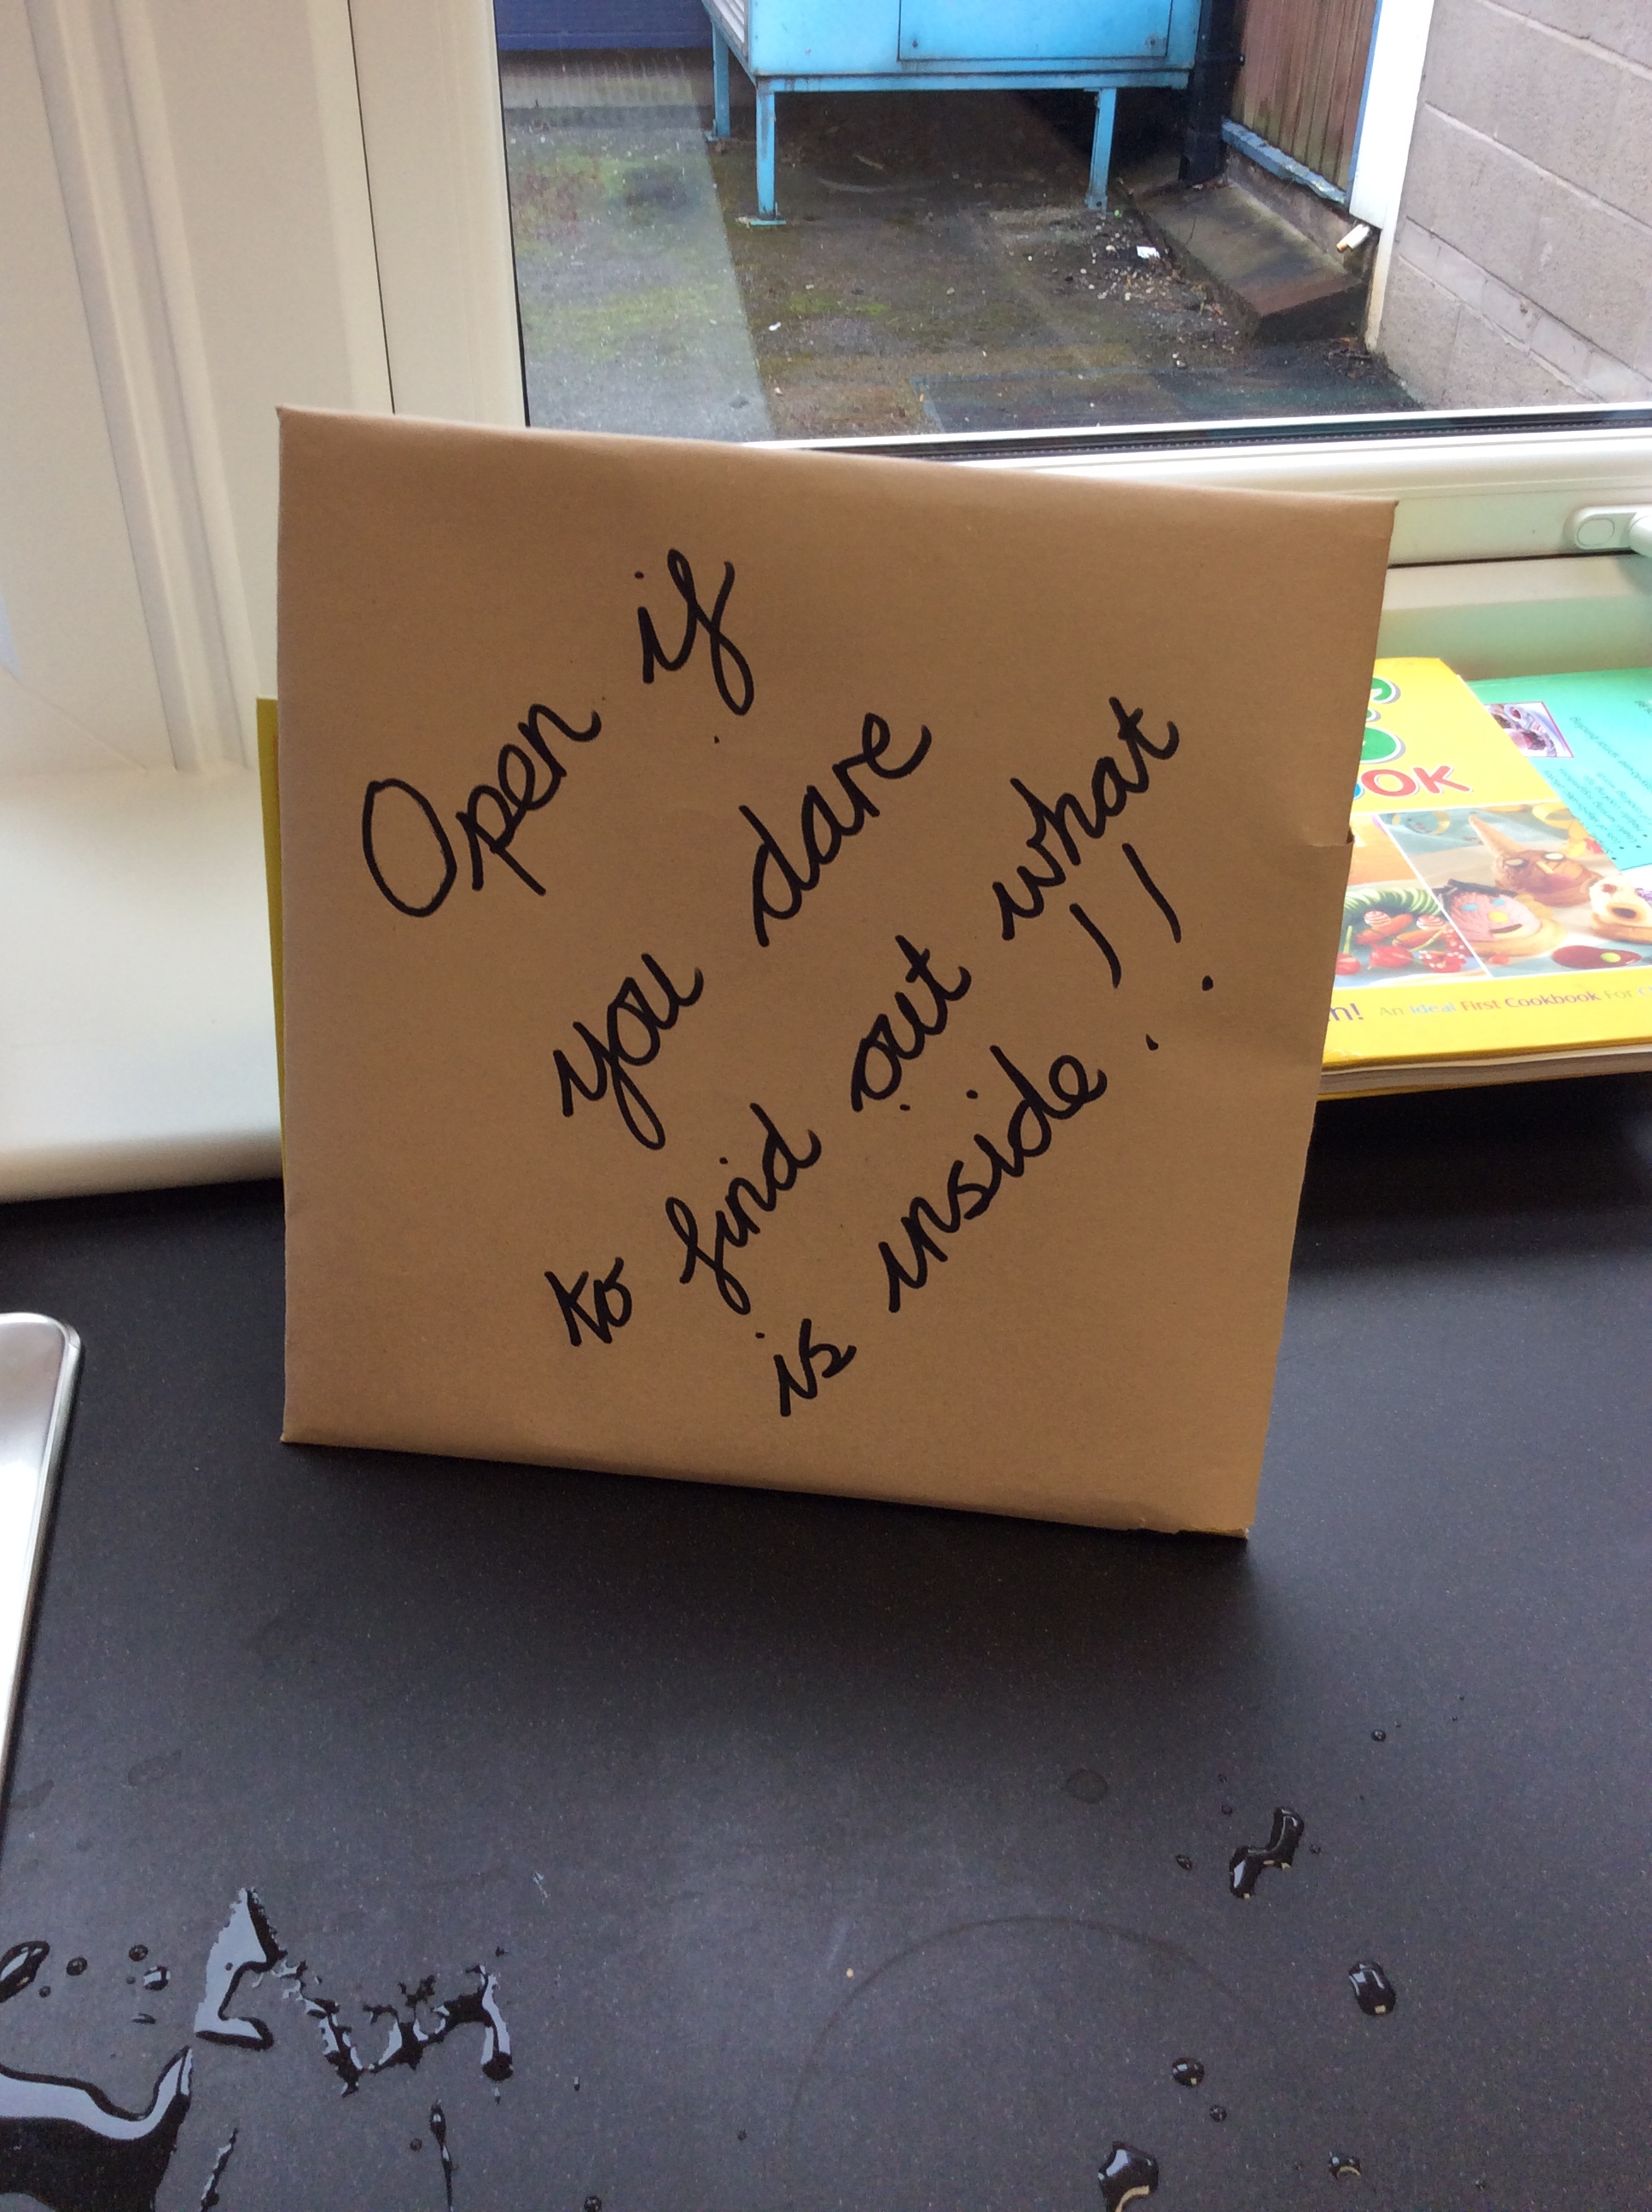 Open if
you dare
to find out what
is inside!!
OK
n! An Ideal First Cookbook For